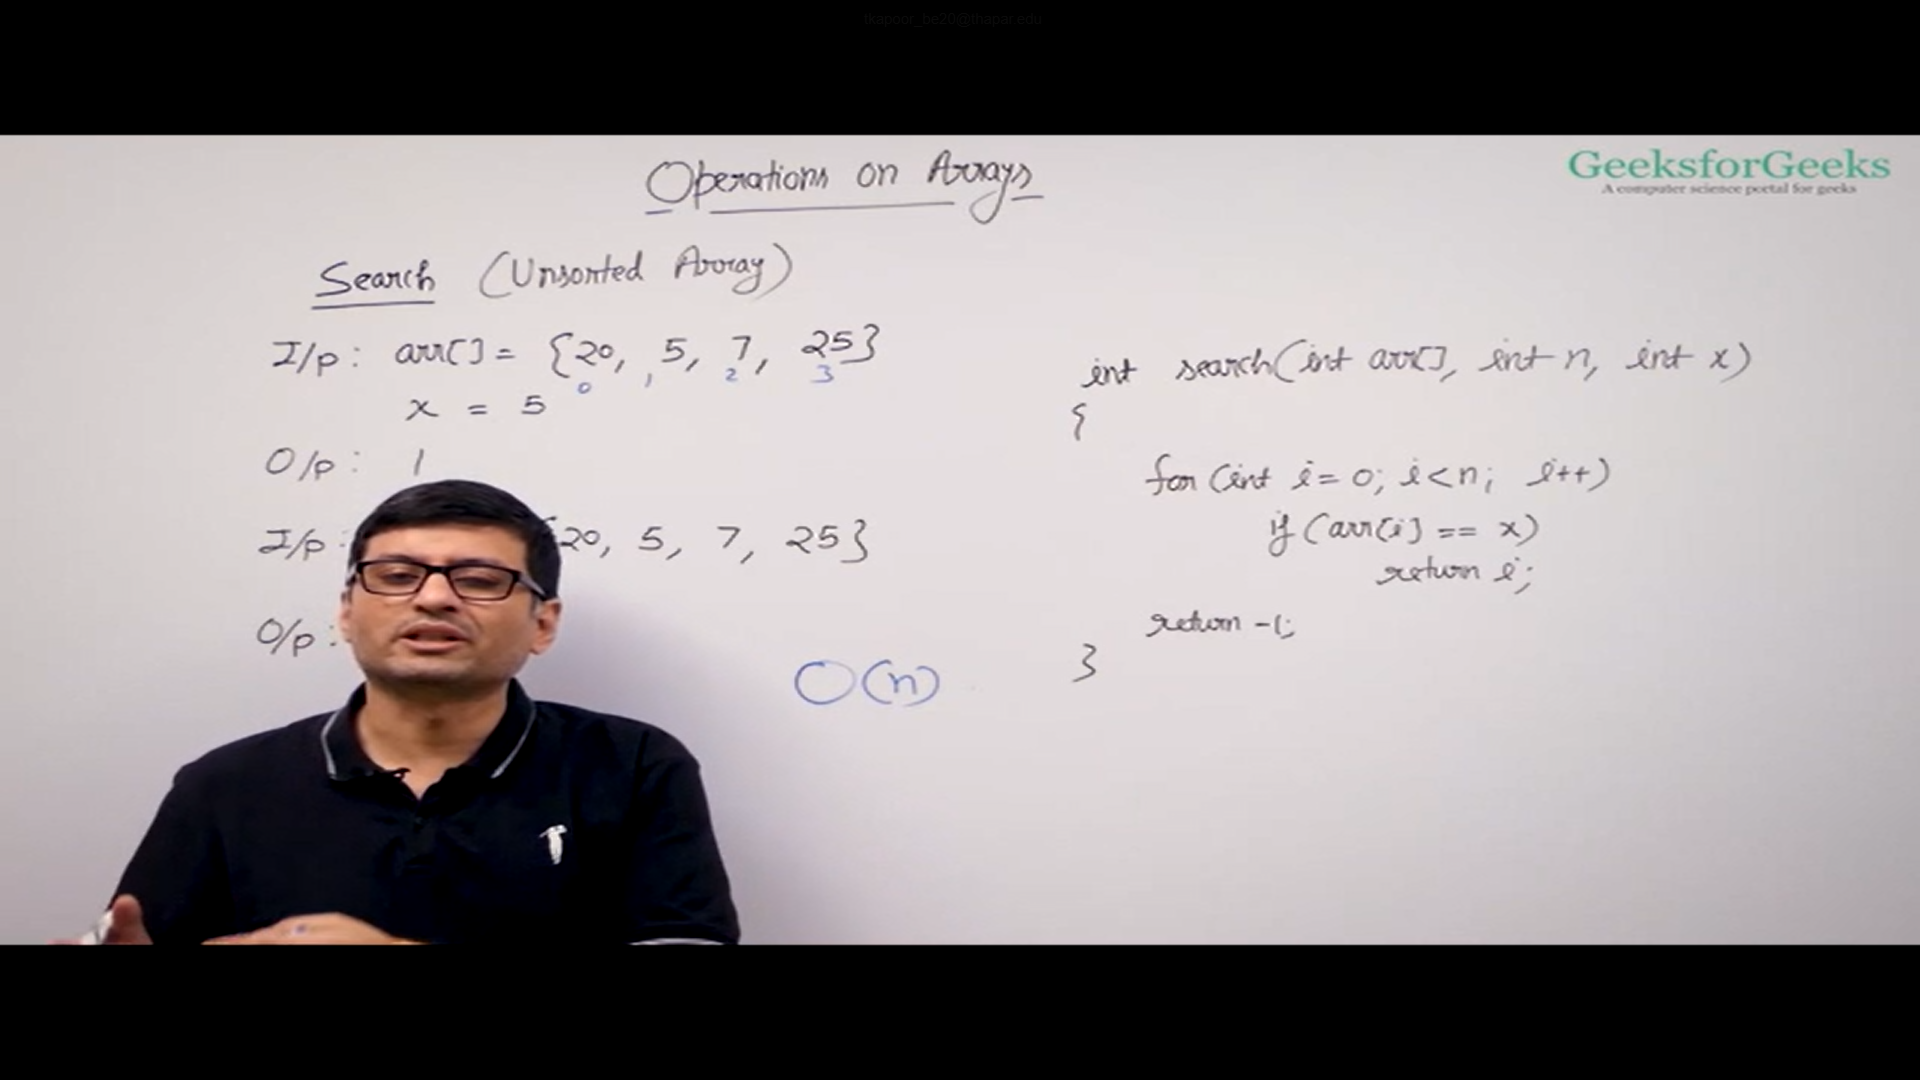 tkapoor_be20@thapar.edu
GeeksforGeeks
A computer science portal for geeks
Operations on Arrays
Search (Unsorted Array)
I/p: arr[] = {20, 5, 7, 25}
0 1 2 3
x = 5
O/p: 1
I/p: {20, 5, 7, 25}
O/p:
O(n)
int search(int arr[], int n, int x)
{
for (int i = 0; i < n; i++)
if (arr[i] == x)
return i;
return -1;
}